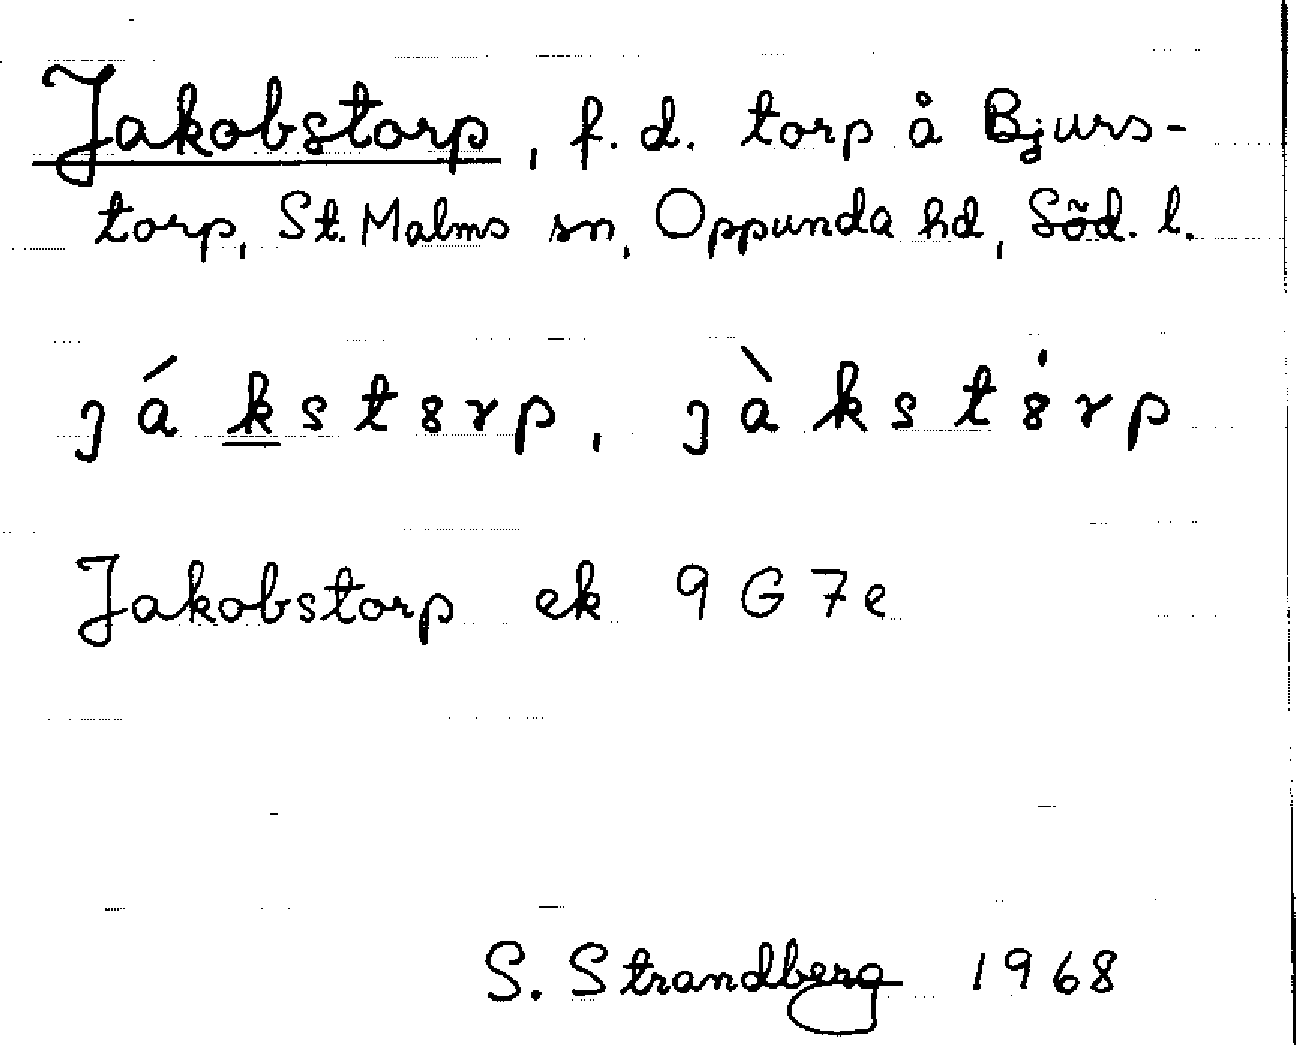 Jakobstorp, f. d. torp å Bjurs-
torp, St. Malms sn, Oppunda hd, Söd. l.
ȷákst8rp, ȷàkst8̇rp
Jakobstorp ek 9G7e
S. Strandberg 1968